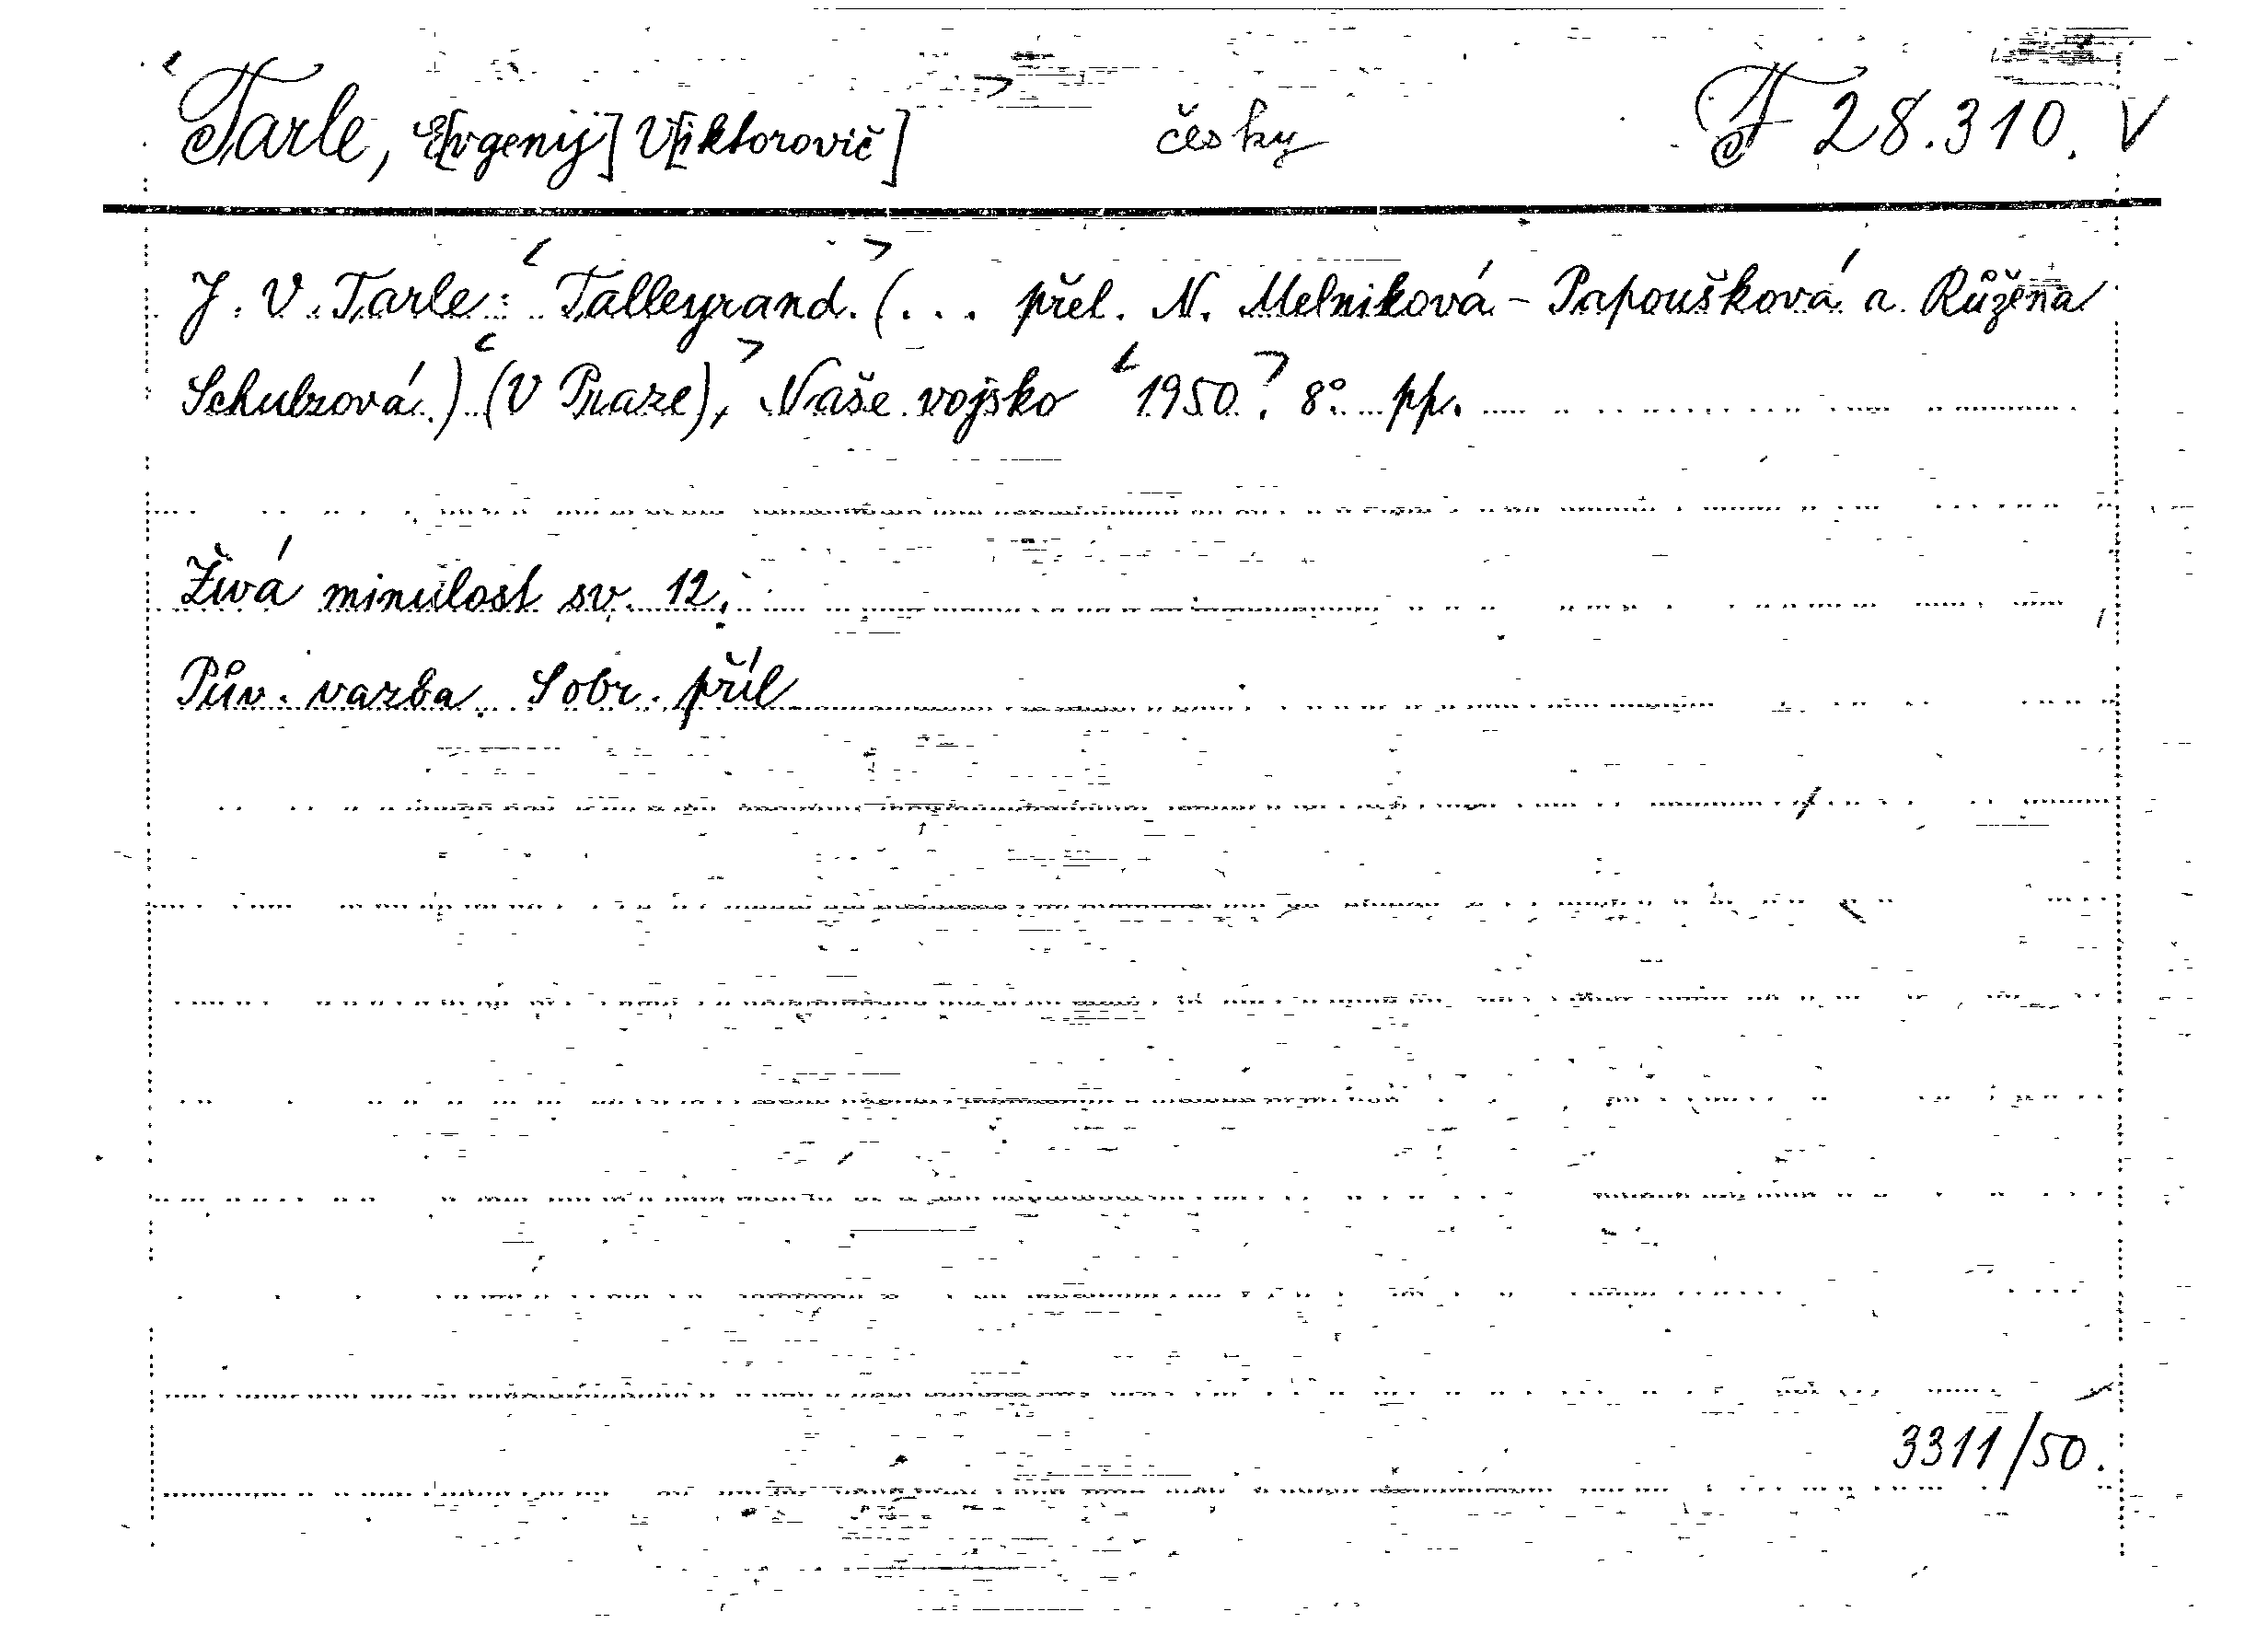 Tarle, E[vgenij] V[iktorovič] česky F 28.310. V
J. V. Tarle: Talleyrand. (... přel. N. Melniková-Papoušková a Růžena
Schulzová.) (V Praze), Naše vojsko 1950. 8° pp.
Živá minulost sv. 12.
Pův. vazba. S obr. příl
3311/50.